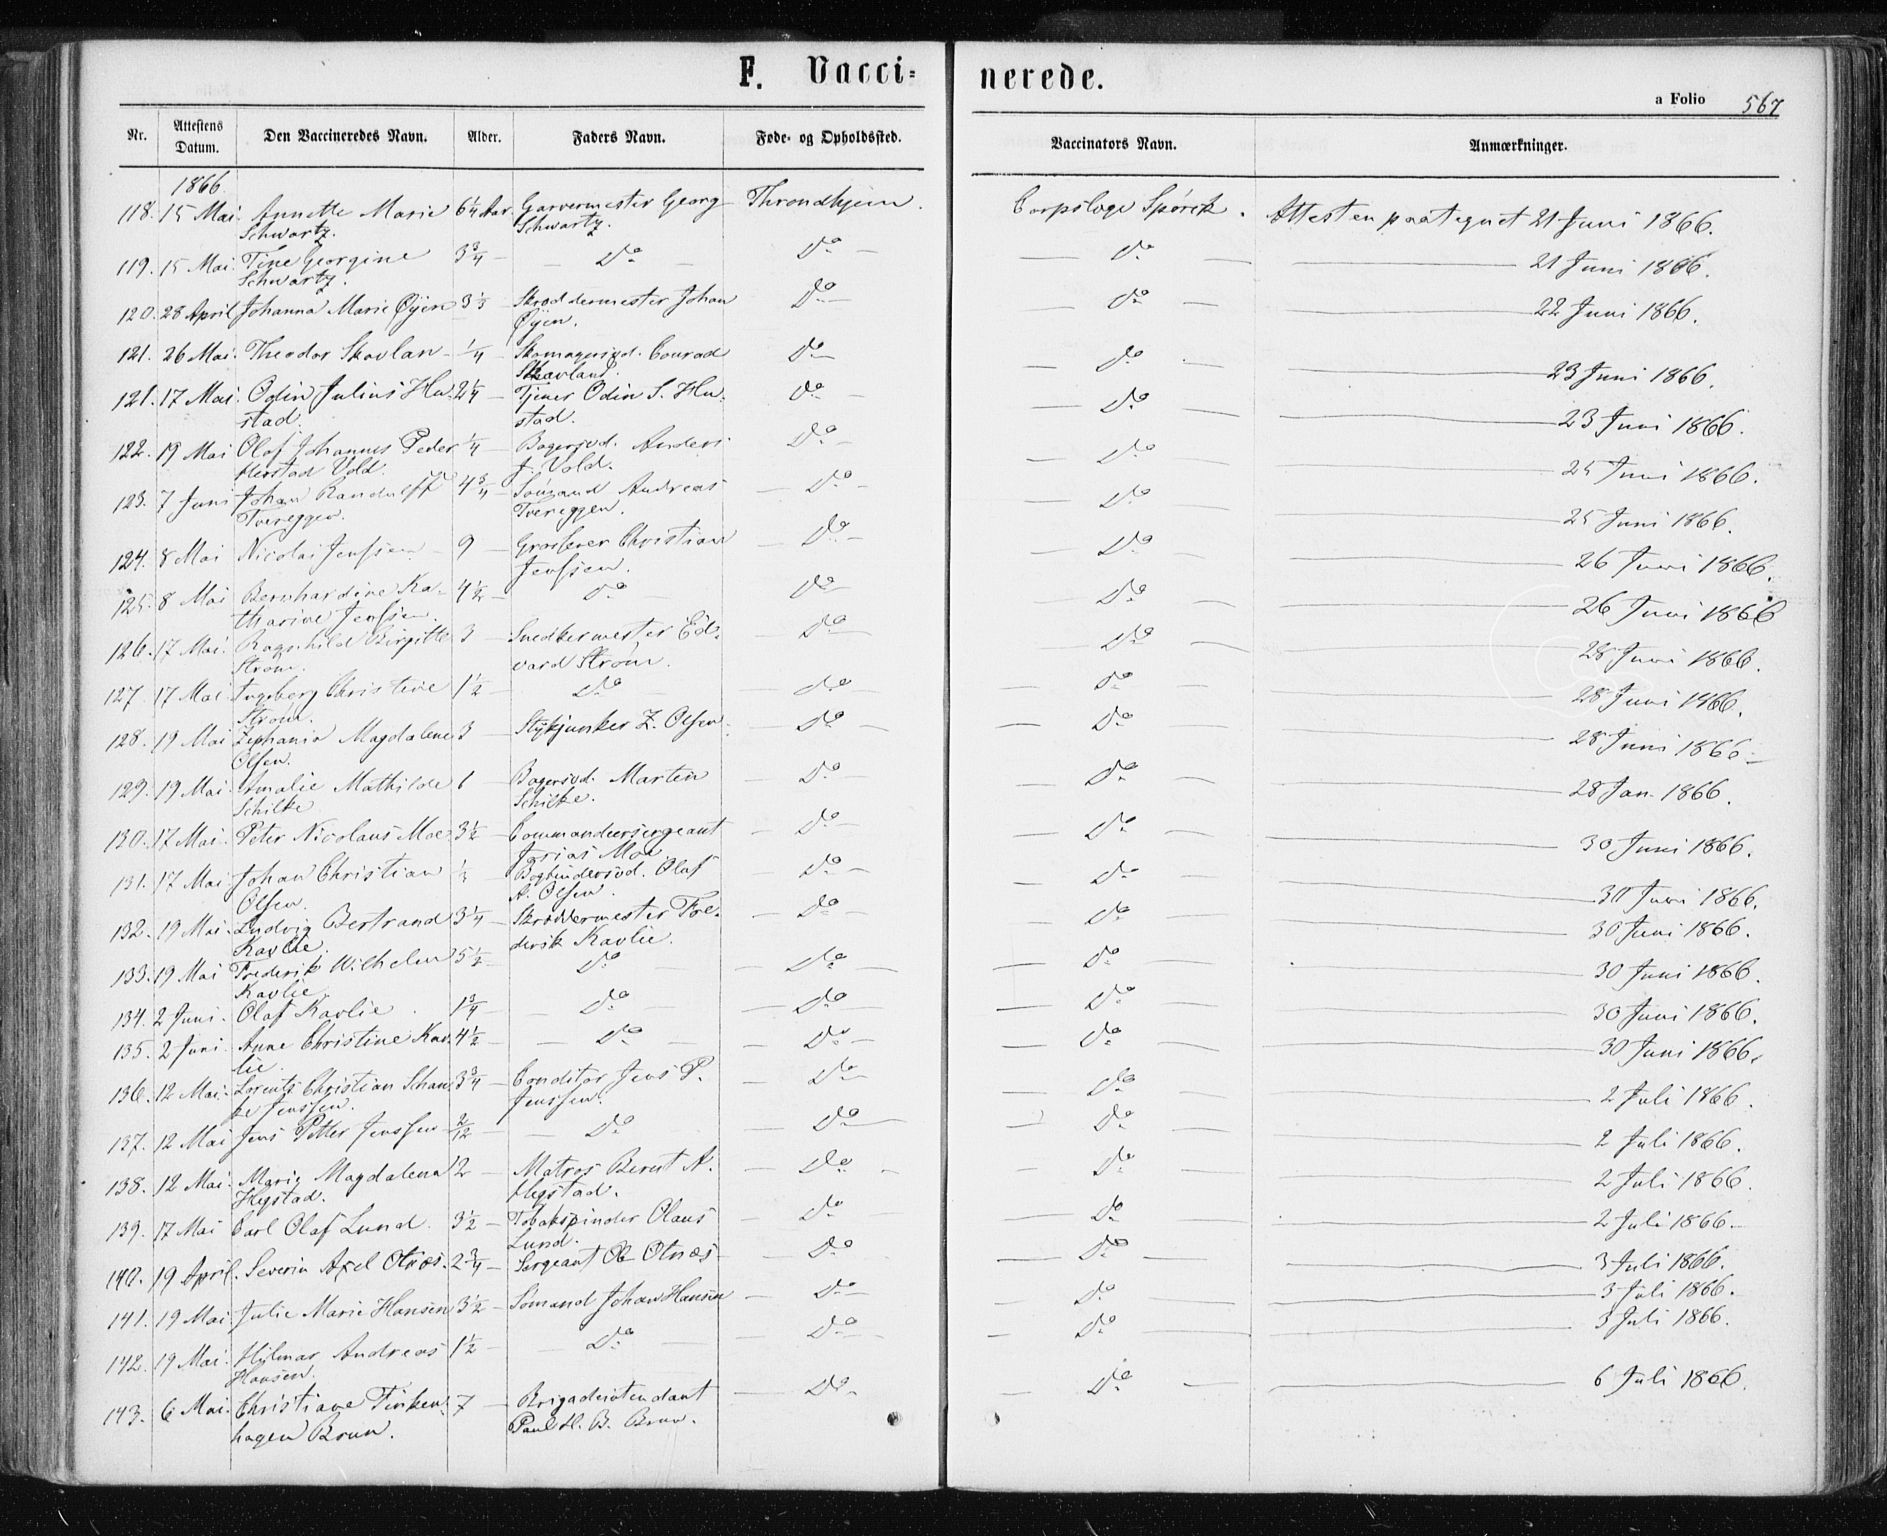 F. Vacci=
nerede.
a Folio 567
Nr. Attestens Datum. Den Vaccineredes Navn. Alder. Faders Navn. Føde- og Opholdssted. Vaccinators Navn. Anmærkninger.
1866.
118. 15 Mai. Annette Marie 6 1/4 Aar. Garvermester Georg Throndhjem. Corpslæge Spørck. Attesten paategnet 21 Juni 1866.
Schwartz. Schwartz.
119. 15 Mai. Tine Georgine 3 3/4 — Do — Do — Do — 21 Juni 1866.
Schwartz.
120. 28 April Johanna Marie Øyen 3 1/3 Skræddermester Johan Do — Do — 22 Juni 1866.
Øyen.
121. 26 Mai. Theodor Skavlan 1/4 Skomagersvd. Conrad Do — Do — 23 Juni 1866.
Skavland.
121. 17 Mai. Odin Julius Hu- 2 1/4 Tjener Odin S. Hu- Do — Do — 23 Juni 1866.
stad. stad.
122. 19 Mai Olaf Johannes Peder 1/4 Bagersvd. Anders Do — Do — 25 Juni 1866.
Herstad Vold. J. Vold.
123. 7 Juni Johan Randulff 4 3/4 Sømand Andreas — Do — Do — 25 Juni 1866.
Tvereggen. Tvereggen.
124. 8 Mai Nicolai Jenssen 9 — Grosserer Christian — Do — Do — 26 Juni 1866.
Jenssen.
125. 8 Mai Bernhardine Ka- 4 1/2 — Do — Do — Do — 26 Juni 1866
tharine Jenssen.
126. 17 Mai. Ragnhild Birgitte 3 — Snedkermester Ed- Do — Do — 28 Juni 1866.
Strøm. vard Strøm.
127. 17 Mai Ingeborg Christine 1 1/2 — Do — Do — Do — 28 Juni 1866.
Strøm.
128. 19 Mai Zephania Magdalene 3 — Stykjunker Z. Olsen. — Do — Do — 28 Juni 1866 —
Olsen.
129. 19 Mai. Amalie Mathilde 6 — Bagersvd. Martin — Do — Do — 28 Jan. 1866.
Schilke Schilke.
130. 17 Mai. Peter Nicolaus Moe 3 1/2 — Commandeersergeant — Do — Do — 30 Juni 1866.
Josias Moe
131. 17 Mai Johan Christian Bogbindersvd. Olaf — Do — Do — 30 Juni 1866.
Olsen. A. Olsen.
132. 19 Mai. Ludvig Bertrand 3 1/4 — Skræddermester Fre- — Do — Do — 30 Juni 1866.
Kavlie. derik Kavlie.
133. 19 Mai Frederik Wilhelm 5 1/2 Do — Do — Do — 30 Juni 1866.
Kavlie
134. 2 Juni. Olaf Kavlie. 1 3/4 — Do — Do — Do — 30 Juni 1866.
135. 2 Juni. Anne Christine Kav- 4 1/2 — Do — Do — Do — 30 Juni 1866.
lie.
136. 12 Mai. Lorents Christian Schan- 3 3/4 — Conditor Jens P. — Do — Do — 2 Juli 1866.
ke Jenssen. Jenssen.
137. 12 Mai Jens Petter Jenssen 2/12 — Do — Do — Do — 2 Juli 1866.
138. 12 Mai. Marie Magdalena 2 — Matros Bernt A. — Do — Do — 2 Juli 1866.
Hegstad. Hegstad.
139. 17 Mai Carl Olaf Lund. 3 1/2 — Tobakspinder Olaus — Do — Do — 2 Juli 1866.
Lund.
140. 19 April. Severin Axel Otnæs. 2 3/4 — Sergeant Ole Otnæs — Do — Do — 3 Juli 1866.
141. 19 Mai Julie Marie Hansen 3 1/2 — Sømand Johan Hansen — Do — Do — 3 Juli 1866.
142. 19 Mai. Hilmar Andreas 1 1/2 — Do — Do — Do — 3 Juli 1866.
Hansen.
143. 6 Mai. Christiane Finken- 7 — Brigadeintendant — Do — Do — 6 Juli 1866.
hagen Brun. Paul H. B. Brun.